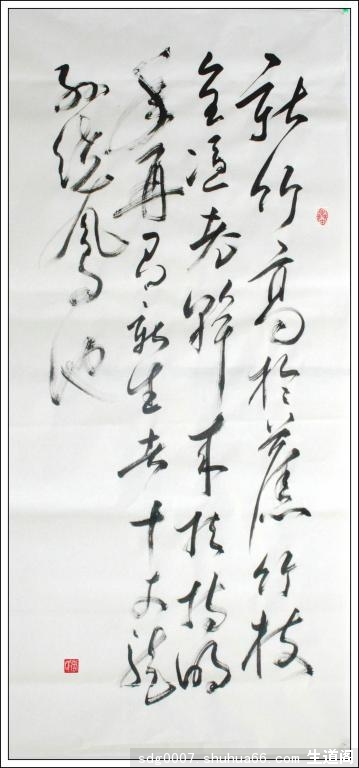 新竹高於舊竹枝
全憑老幹来扶持明
年再有新生者十丈龍
孫繞鳳池
sdg0007 shuhua66.com 生道阁